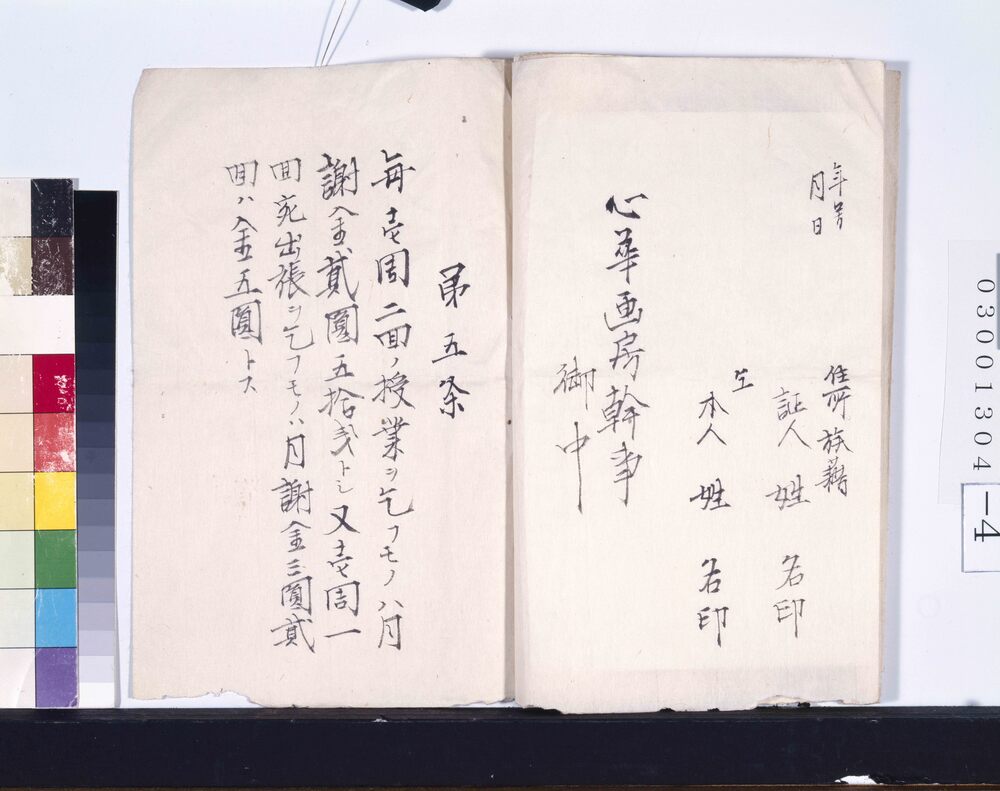 年号
月日
住所族籍
証人 姓 名印
本人 姓 名印
心華画房幹事
御中
第五条
毎壱周二回ノ授業ヲ乞フモノハ月
謝金貳圓五拾戋トシ又壱周一
回宛出張ヲ乞フモノハ月謝金三圓貳
回ハ金五圓トス
03001304
-4